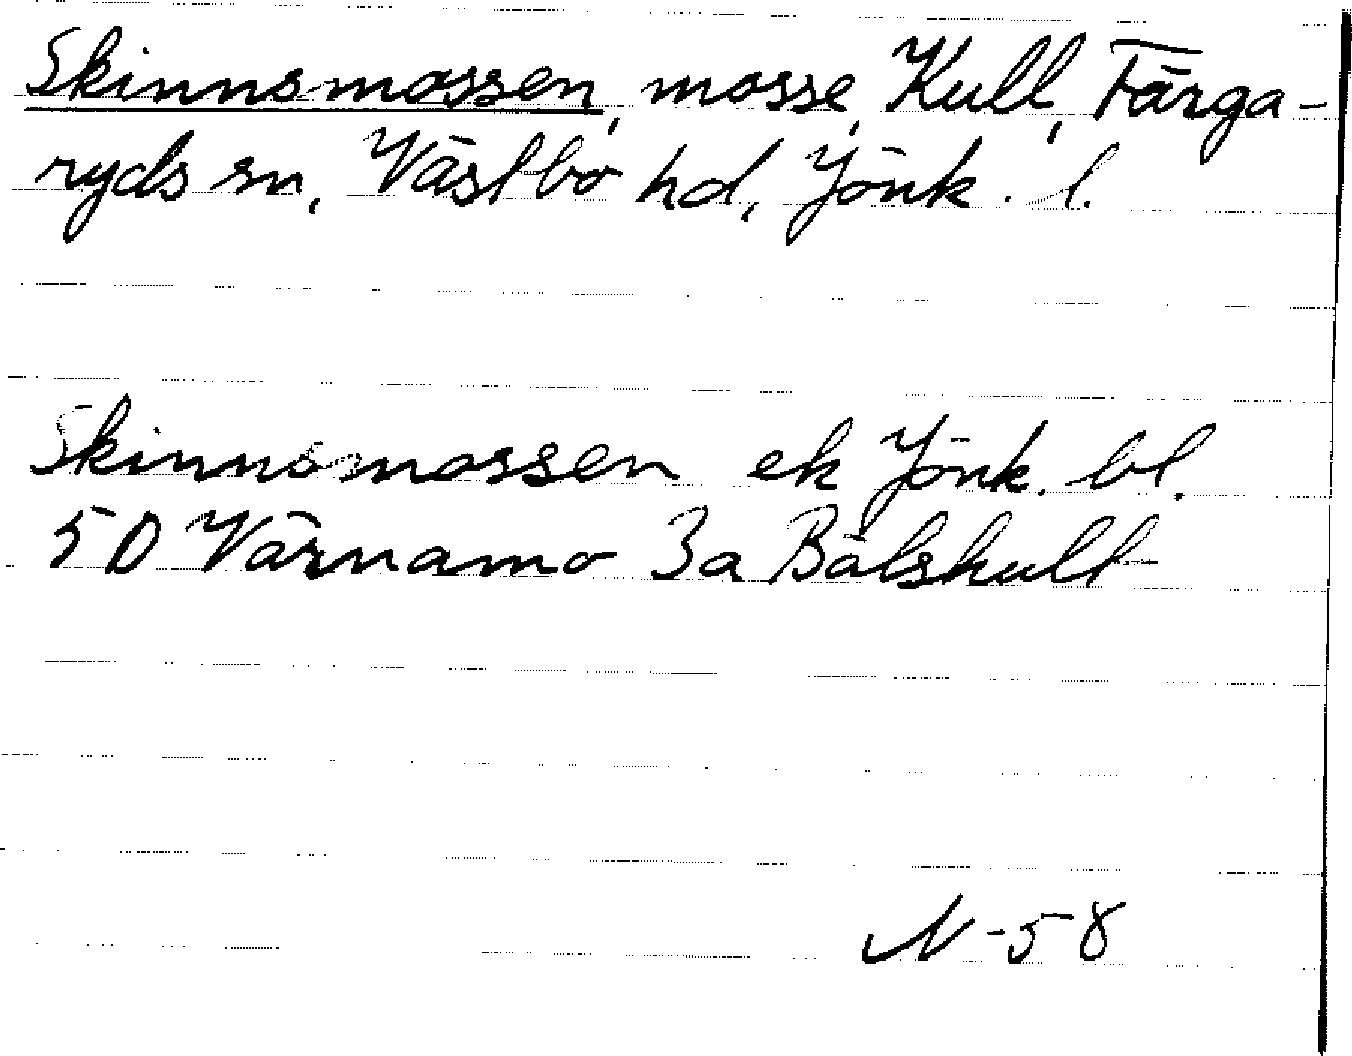 Skinnsmossen, mosse, Kull, Färga-
ryds sn, Västbo hd, Jönk. l.
Skinnsmossen ek Jönk. bl.
5D Värnamo 3a Bälshult
N-58